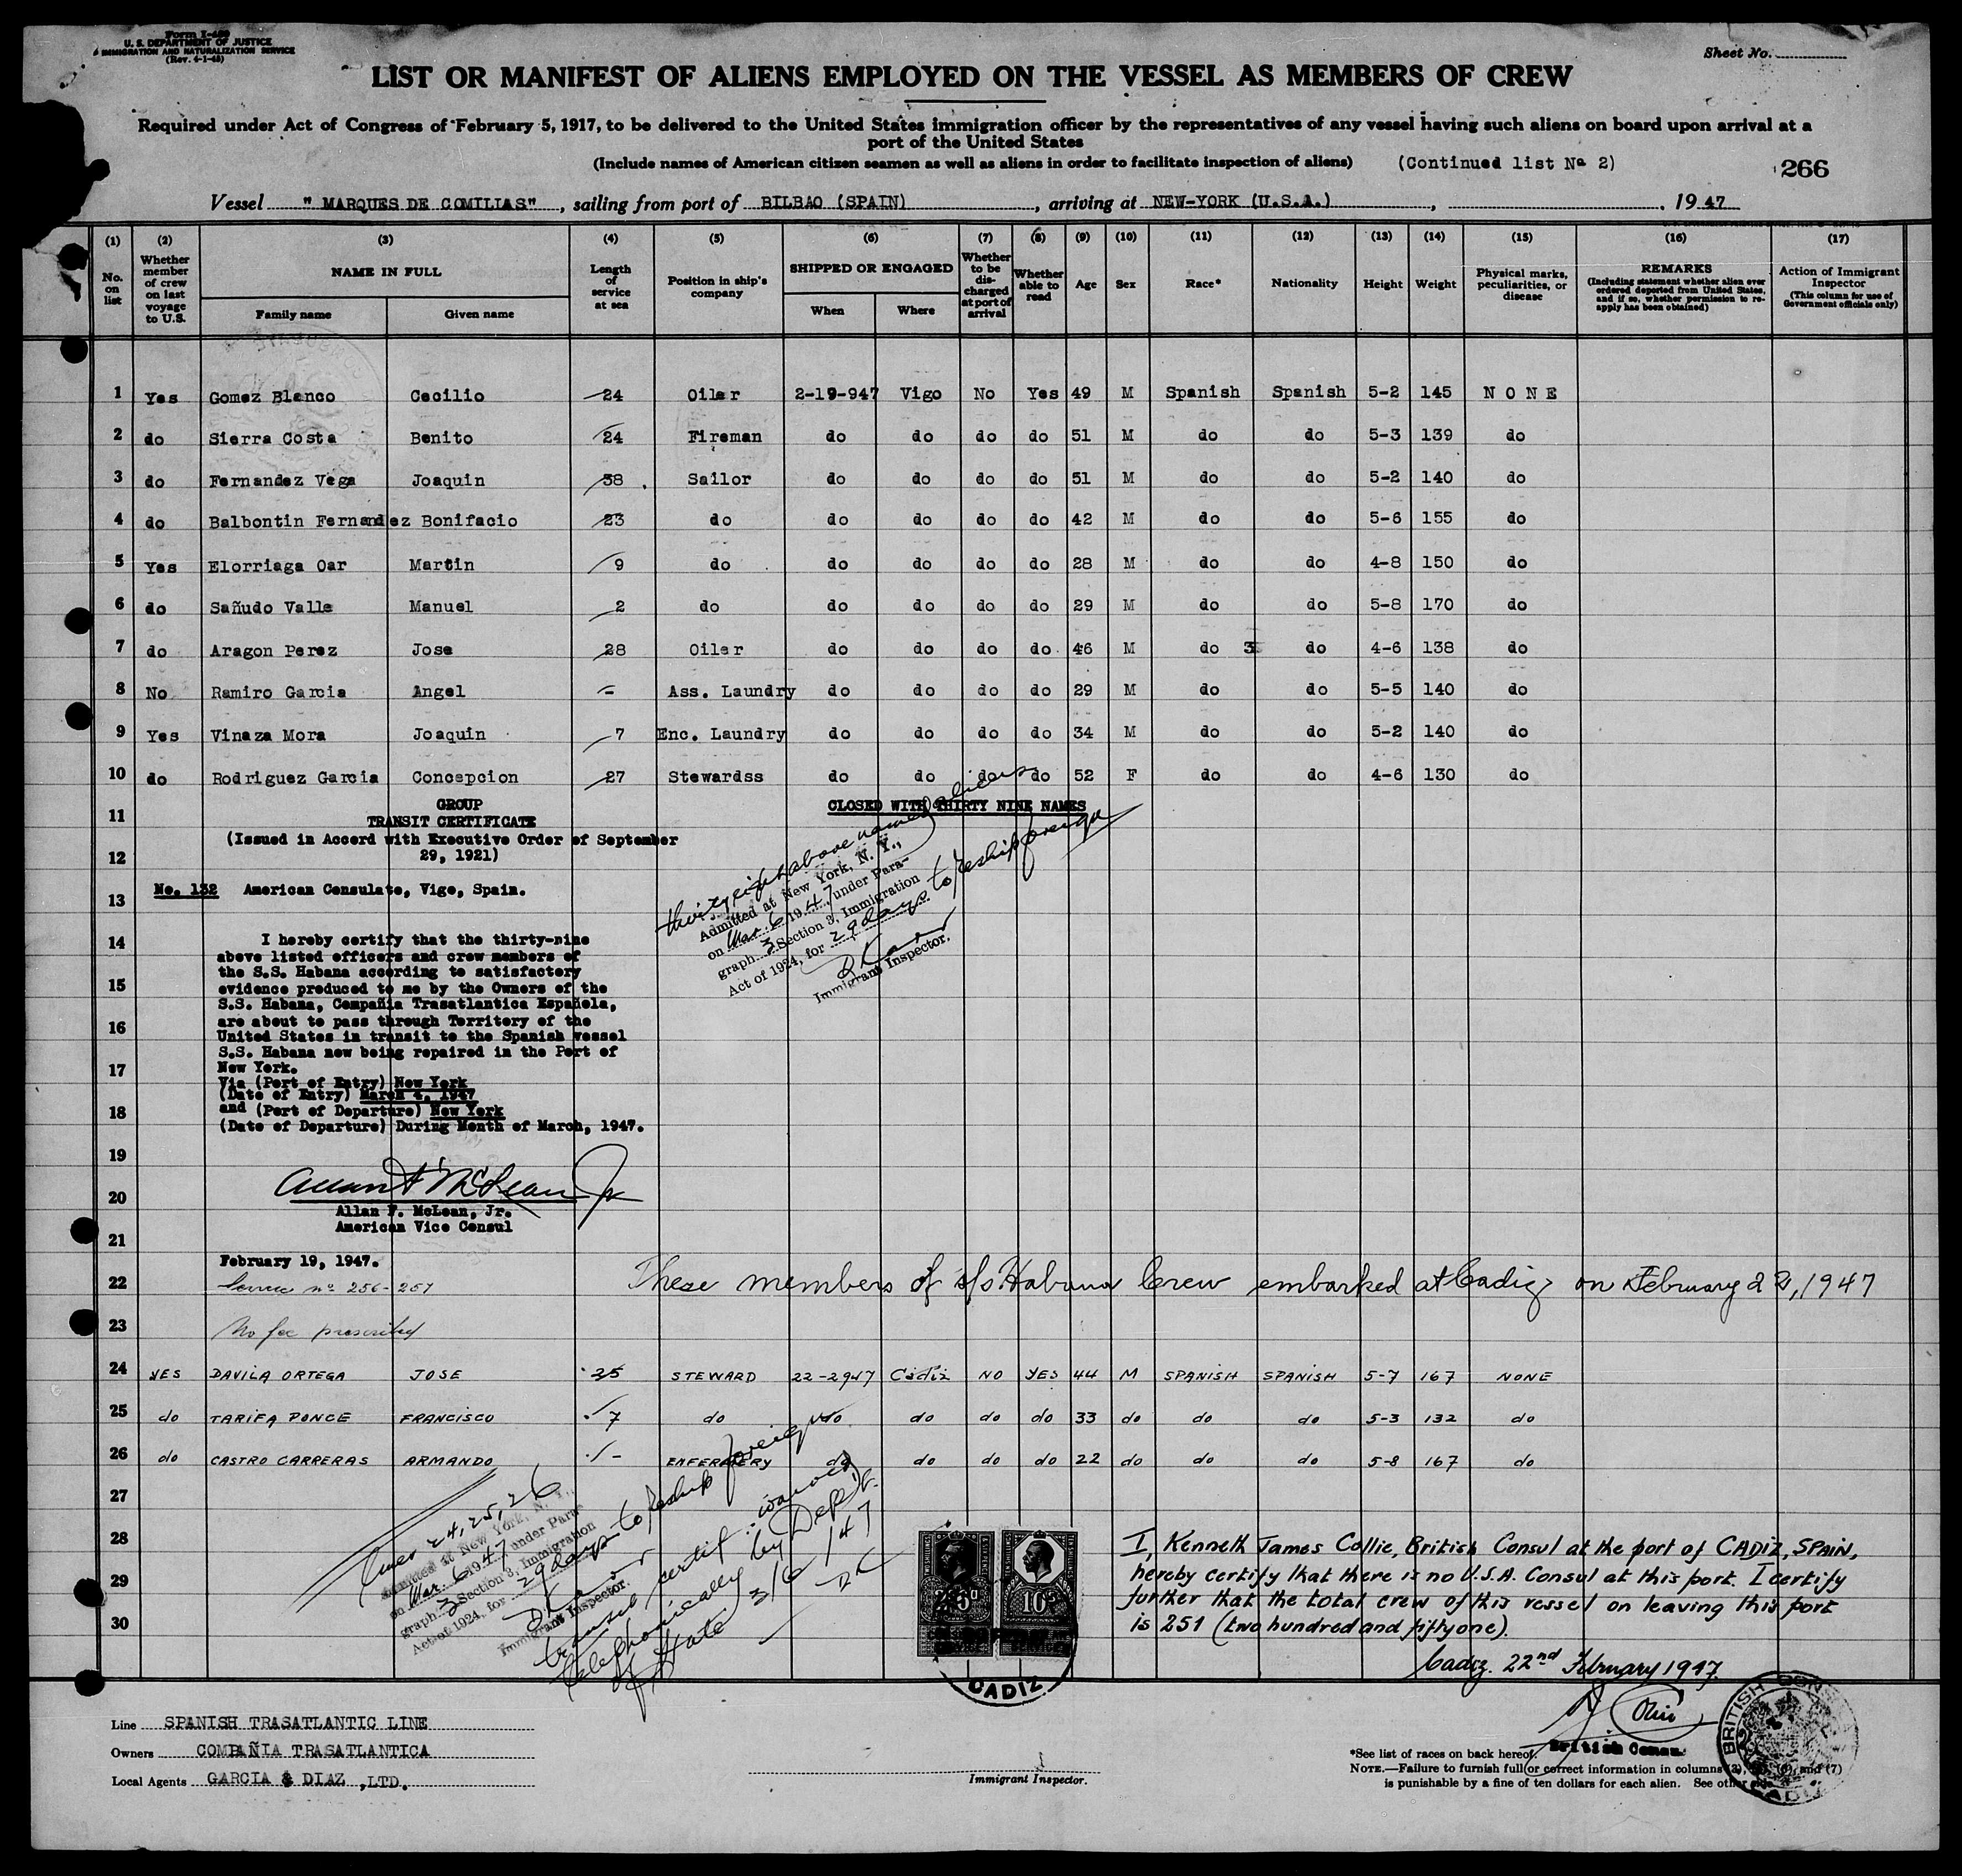 Form I-480
U. S. DEPARTMENT OF JUSTICE
IMMIGRATION AND NATURALIZATION SERVICE
(Rev. 4-1-45)
Sheet No.
LIST OR MANIFEST OF ALIENS EMPLOYED ON THE VESSEL AS MEMBERS OF CREW
Required under Act of Congress of February 5, 1917, to be delivered to the United States immigration officer by the representatives of any vessel having such aliens on board upon arrival at a
port of the United States
(Include names of American citizen seamen as well as aliens in order to facilitate inspection of aliens) (Continued list Nº 2)
266
Vessel " MARQUES DE COMILIAS" , sailing from port of BILBAO (SPAIN) , arriving at NEW-YORK (U.S.A.) , , 1947
(1) (2) (3) (4) (5) (6) (7) (8) (9) (10) (11) (12) (13) (14) (15) (16) (17)
No. on list
Whether member of crew on last voyage to U.S.
NAME IN FULL
Family name
Given name
Length of service at sea
Position in ship's company
SHIPPED OR ENGAGED
When
Where
Whether to be discharged at port of arrival
Whether able to read
Age
Sex
Race*
Nationality
Height
Weight
Physical marks, peculiarities, or disease
REMARKS
(Including statement whether alien ever ordered deported from United States, and if so, whether permission to reapply has been obtained)
Action of Immigrant Inspector
(This column for use of Government officials only)
1 Yes Gomez Blanco Cecilio 24 Oiler 2-19-947 Vigo No Yes 49 M Spanish Spanish 5-2 145 N O N E
2 do Sierra Costa Benito 24 Fireman do do do do 51 M do do 5-3 139 do
3 do Fernandez Vega Joaquin 38 Sailor do do do do 51 M do do 5-2 140 do
4 do Balbontin Fernandez Bonifacio 23 do do do do do 42 M do do 5-6 155 do
5 Yes Elorriaga Oar Martin 9 do do do do do 28 M do do 4-8 150 do
6 do Sañudo Valle Manuel 2 do do do do do 29 M do do 5-8 170 do
7 do Aragon Perez Jose 28 Oiler do do do do 46 M do do 4-6 138 do
8 No Ramiro Garcia Angel - Ass. Laundry do do do do 29 M do do 5-5 140 do
9 Yes Vinaza Mora Joaquin 7 Enc. Laundry do do do do 34 M do do 5-2 140 do
10 do Rodriguez Garcia Concepcion 27 Stewardss do do do do 52 F do do 4-6 130 do
11
12
13
14
15
16
17
18
19
20
21
22
23
GROUP
TRANSIT CERTIFICATE
(Issued in Accord with Executive Order of September
29, 1921)
No. 132 American Consulate, Vigo, Spain.
I hereby certify that the thirty-nine
above listed officers and crew members of
the S.S. Habana according to satisfactory
evidence produced to me by the Owners of the
S.S. Habana, Compañia Trasatlantica Española,
are about to pass through Territory of the
United States in transit to the Spanish vessel
S.S. Habana now being repaired in the Port of
New York.
Via (Port of Entry) New York
(Date of Entry) March 4, 1947
and (Port of Departure) New York
(Date of Departure) During Month of March, 1947.
Allan F. McLean, Jr.
American Vice Consul
February 19, 1947.
Service nº 256-257
No fee prescribed
CLOSED WITH THIRTY NINE NAMES
thirty eight above named aliens
Admitted at New York, N. Y.,
on Mar. 6 1947 under Para-
graph 3 Section 3, Immigration
Act of 1924, for 29 days to reship foreign
Immigrant Inspector.
These members of s/s Habana Crew embarked at Cadiz on February 22, 1947
24 YES DAVILA ORTEGA JOSE 25 STEWARD 22-2947 Cadiz NO YES 44 M SPANISH SPANISH 5-7 167 NONE
25 do TARIFA PONCE FRANCISCO 7 do do do do do 33 do do do 5-3 132 do
26 do CASTRO CARRERAS ARMANDO - ENFERMERY do do do do 22 do do do 5-8 167 do
27
28
29
30
lines 24, 25, 26
Admitted at New York, N. Y.,
on Mar. 6 1947 under Para-
graph 3 Section 3, Immigration
Act of 1924, for 29 days to reship foreign
Immigrant Inspector.
transit certif. waived
telephonically by Dept.
of State 3/6/47
10S
CADIZ
I, Kenneth James Collie, British Consul at the port of CADIZ, SPAIN,
hereby certify that there is no U.S.A. Consul at this port. I certify
further that the total crew of this vessel on leaving this port
is 251 (two hundred and fiftyone).
Cadiz. 22nd February 1947.
British Consul
BRITISH CONSULATE CADIZ
Line SPANISH TRASATLANTIC LINE
Owners COMPAÑIA TRASATLANTICA
Local Agents GARCIA & DIAZ ,LTD.
Immigrant Inspector.
*See list of races on back hereof.
NOTE.—Failure to furnish full or correct information in columns (3), and (7)
is punishable by a fine of ten dollars for each alien. See other side.